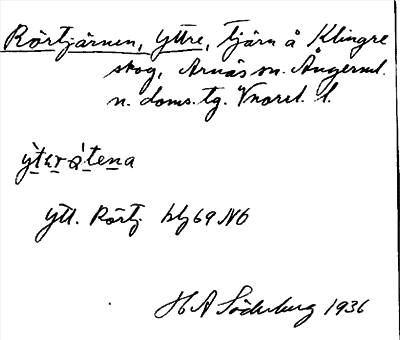 Rörtjärnen, Yttre, Tjärn å Klingre
skog, Arnäs sn. Ångerml.
n. doms.tg. Vnorrl. l.
ytt. Rörtj. blg 69 NO
H A Söderberg 1936